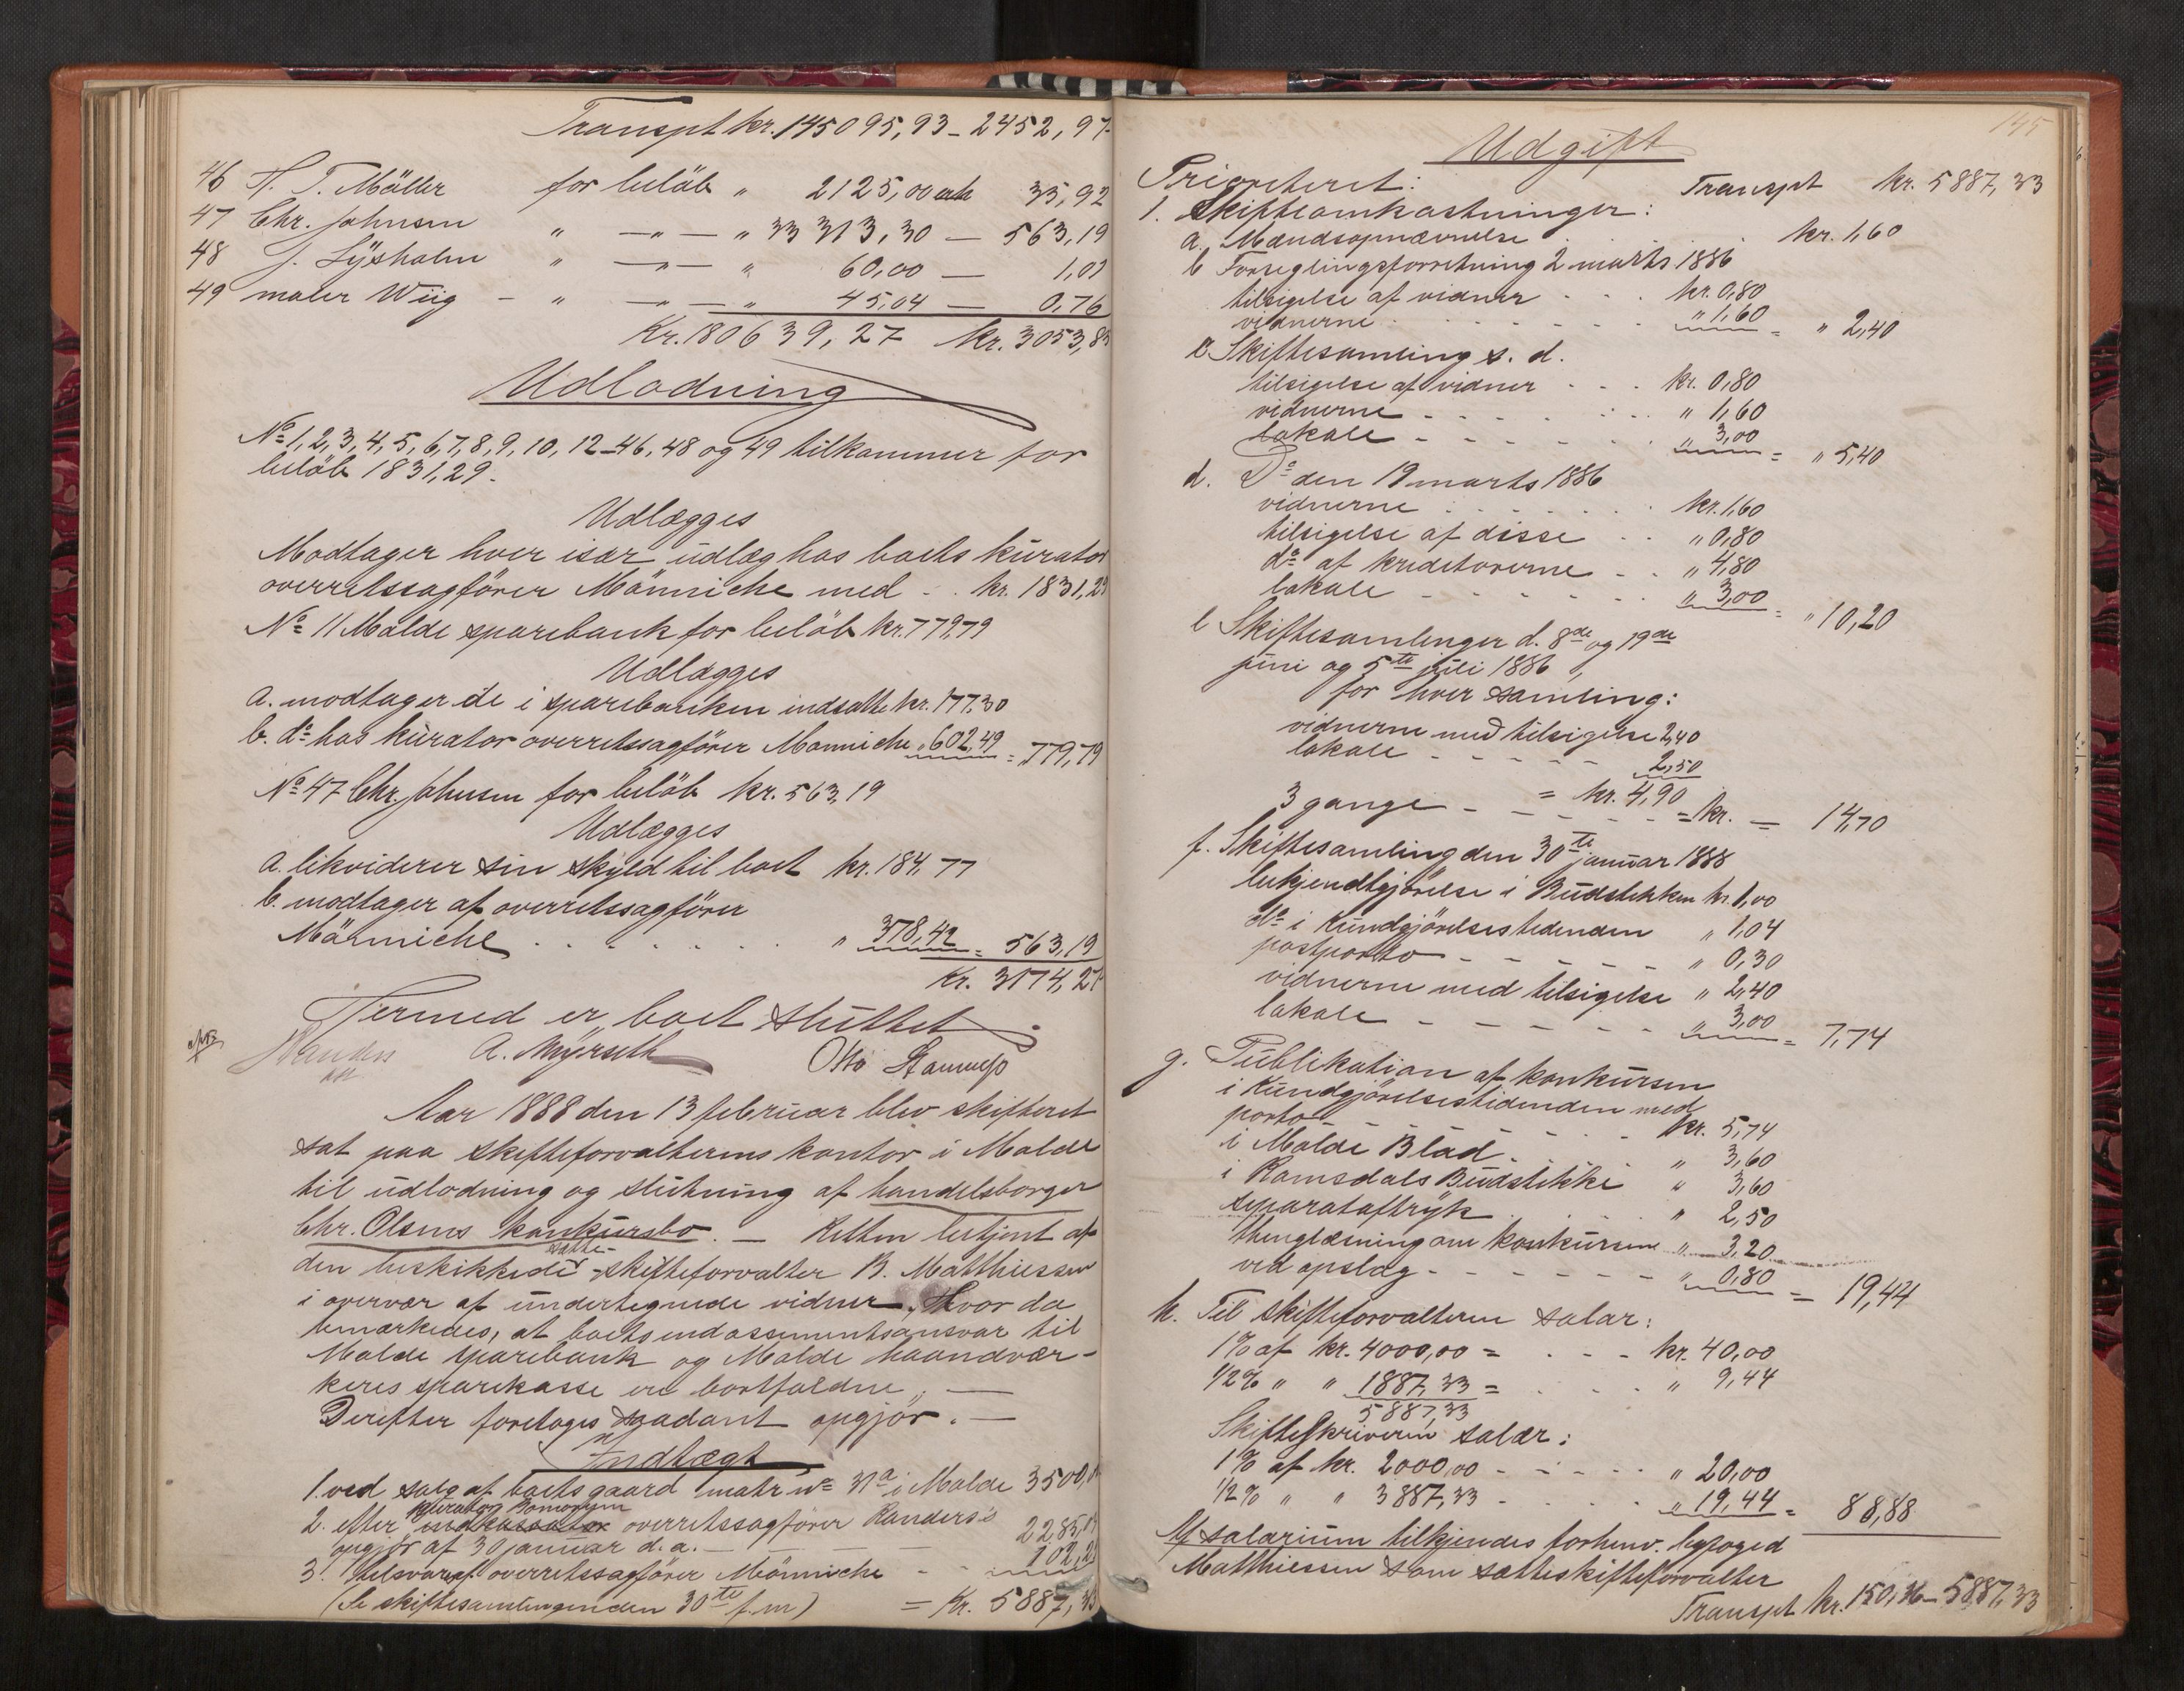 Transpt kr. 145095,93 - 2452,97
46 H. T. Mäller for belöb " 2125,00 och 35,92
47 Chr. Johnsen " —"— " 33 313,30 — 563,19
48 J. Lÿsholm " —"— " 60,00 — 1,01
49 maler Wiig - " —"— " 45,04 — 0,76
Kr. 180639,27 kr. 3053,85
Udlodning
No 1, 2, 3, 4, 5, 6, 7, 8, 9, 10, 12-46, 48 og 49 tilkommer for
belöb 1831,29.
Udlægges
Modtager hver især udlæg hos boets kurator
overretssagförer Männiche med . . kr. 1831,29
No 11 Molde sparebank for belöb kr. 779,79
Udlægges
a. modtager de i sparebanken indsatte kr. 177,30
b. do hos kurator overretssagförer Manniche " 602,49 = 779,79
No 47 Chr. Johnsen for belöb kr. 563,19
Udlægges
a. likviderer sin skyld til boet kr. 184,77
b. modtager af overretssagförer
Männiche . . . . . . " 378,42 = 563,19
Kr. 3174,27
Hermed er boet sluttet
A. Myrseth Otto Stamnes
Aar 1888 den 13 februar blev skifteret
sat paa skifteforvalterens kontor i Molde
til udlodning og slutning af handelsborger
Chr. Olsens konkursbo. — Retten betjent af
den beskikkede sætte-skifteforvalter B. Matthiessen
i overvær af undertegnede vidner. Hvor da
bemærkedes, at boets endossementsansvar til
Molde sparebank og Molde haandvær-
keres sparekasse ere bortfaldne, —
Derefter foretoges saadant opgjör. —
Indtægt
1. ved salg af boets gaard matr no 31a i Molde 3500,00
2. efter overretssagförer Randers's
opgjör af 30 januar d. a. — — — 2285,
3. tilsvaret overretssagförer Männiche - - 102,
(Se skiftesamlingen den 30te f. m) = Kr. 5887,33
145
Udgift
Prioriteret: Transpt kr. 5887,33
1. Skifteomkostninger:
a. Mændsopnævnelse . . . . kr. 1,60
b Forseglingsforretning 2 marts 1886
tilsigelse af vidner . . . kr. 0,80
vidnerne . . . . . " 1,60 = " 2,40
c Skiftesamling s. d.
tilsigelse af vidner . . . kr. 0,80
vidnerne - - - . . . " 1,60
lokale - - - - - . " 3,00 = " 5,40
d. Do den 19 marts 1886
vidnerne . . . . . kr. 1,60
tilsigelse af disse . . " 0,80
do af kreditorerne - . " 4,80
lokale - - - - - . " 3,00 = " 10,20
e Skiftesamlinger d. 8de og 19de
juni og 5te juli 1886,
for hver samling:
vidnerne med tilsigelse 2,40
lokale - - - - - 2,50
= kr. 4,90
3 gange - - - - - = kr. = 14,70
f. Skiftesamling den 30te januar 1888
bekjendtgjörelse i Budstikken kr. 1,00
do i Kundgjörelsestidenden " 1,04
postporto - - - - - " 0,30
vidnerne med tilsigelse " 2,40
lokale - - - - - " 3,00 = 7,74
g. Publikation af konkursen
i Kundgjörelsestidenden med
porto - - - - - kr. 5,74
i Molde Blad . . . . " 3,60
i Romsdals Budstikke " 3,60
separataftryk . . . . " 2,50
thinglæsning om konkursen " 3,20
ved opslag - - - - - " 0,80 = 19,44
h. Til skifteforvalteren salær:
1% af kr. 4000,00 = . - - kr. 40,00
1/2% " " 1887,33 = . . . " 9,44
5887,33
Skifteskriveren salær:
1% af kr. 2000,00 - - - - " 20,00
1/2% " " 3887,33 - . . . " 19,44 = 88,88
Af salarium tilkjendes forhenv. byfoged
Matthiessen som sætteskifteforvalter
Transpt kr. 150,36 - 5887,33